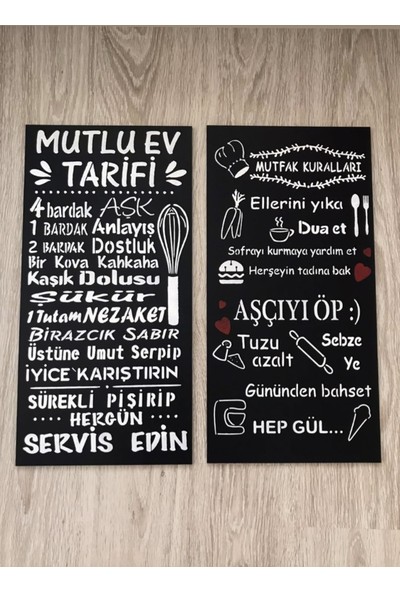 MUTLU EV
TARİFİ
4 bardak AŞK
1 BARDAK Anlayış
2 BARDAK Dostluk
Bir Kova Kahkaha
Kaşık Dolusu
Şükür
1 Tutam NEZAKET
BİRAZCIK SABIR
Üstüne Umut Serpip
İYİCE KARIŞTIRIN
SÜREKLİ PİŞİRİP
HERGÜN
SERVİS EDİN
MUTFAK KURALLARI
Ellerini yıka
Dua et
Sofrayı kurmaya yardım et
Herşeyin tadına bak
AŞÇIYI ÖP :)
Tuzu
azalt
Sebze
Ye
Gününden bahset
HEP GÜL...